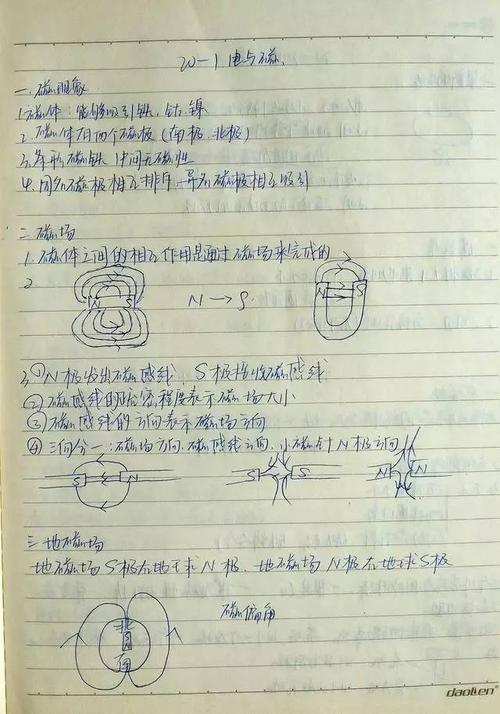 20-1 电与磁.
一.磁现象
1.磁体：能够吸引铁、钴、镍
2.磁体有两个磁极（南极、北极）
3.条形磁铁 中间无磁性
4.同名磁极相互排斥、异名磁极相互吸引
二.磁场
1.磁体之间的相互作用是通过磁场来完成的
2
N S N→S. N S
3.①N极发出磁感线 S极接收磁感线
②磁感线的疏密程度表示磁场大小
③磁感线的方向表示磁场方向
④三向合一：磁场方向、磁感线方向、小磁针N极方向
S N S S N N
三.地磁场
地磁场S极在地球N极、地磁场N极在地球S极
磁偏角
北
南
daolien